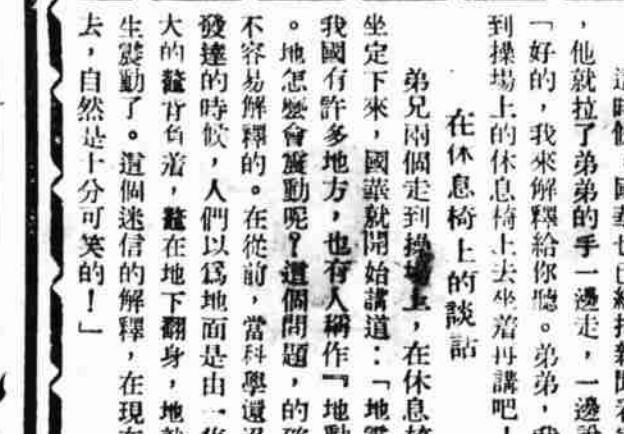 這時候，國華也已經把新聞看
，他就拉了弟弟的手一邊走，一邊說
「好的，我來解釋給你聽。弟弟，我
到操場上的休息椅上去坐着再講吧！
在休息椅上的談話
弟兄兩個走到操場上，在休息椅
坐定下來，國華就開始講道：「地震
我國有許多地方，也有人稱作『地動
。地怎麼會震動呢？這個問題，的確
不容易解釋的。在從前，當科學還沒
發達的時候，人們以爲地面是由一隻
大的鼇背負着，鼇在地下翻身，地就
生震動了。這個迷信的解釋，在現在
去，自然是十分可笑的！」